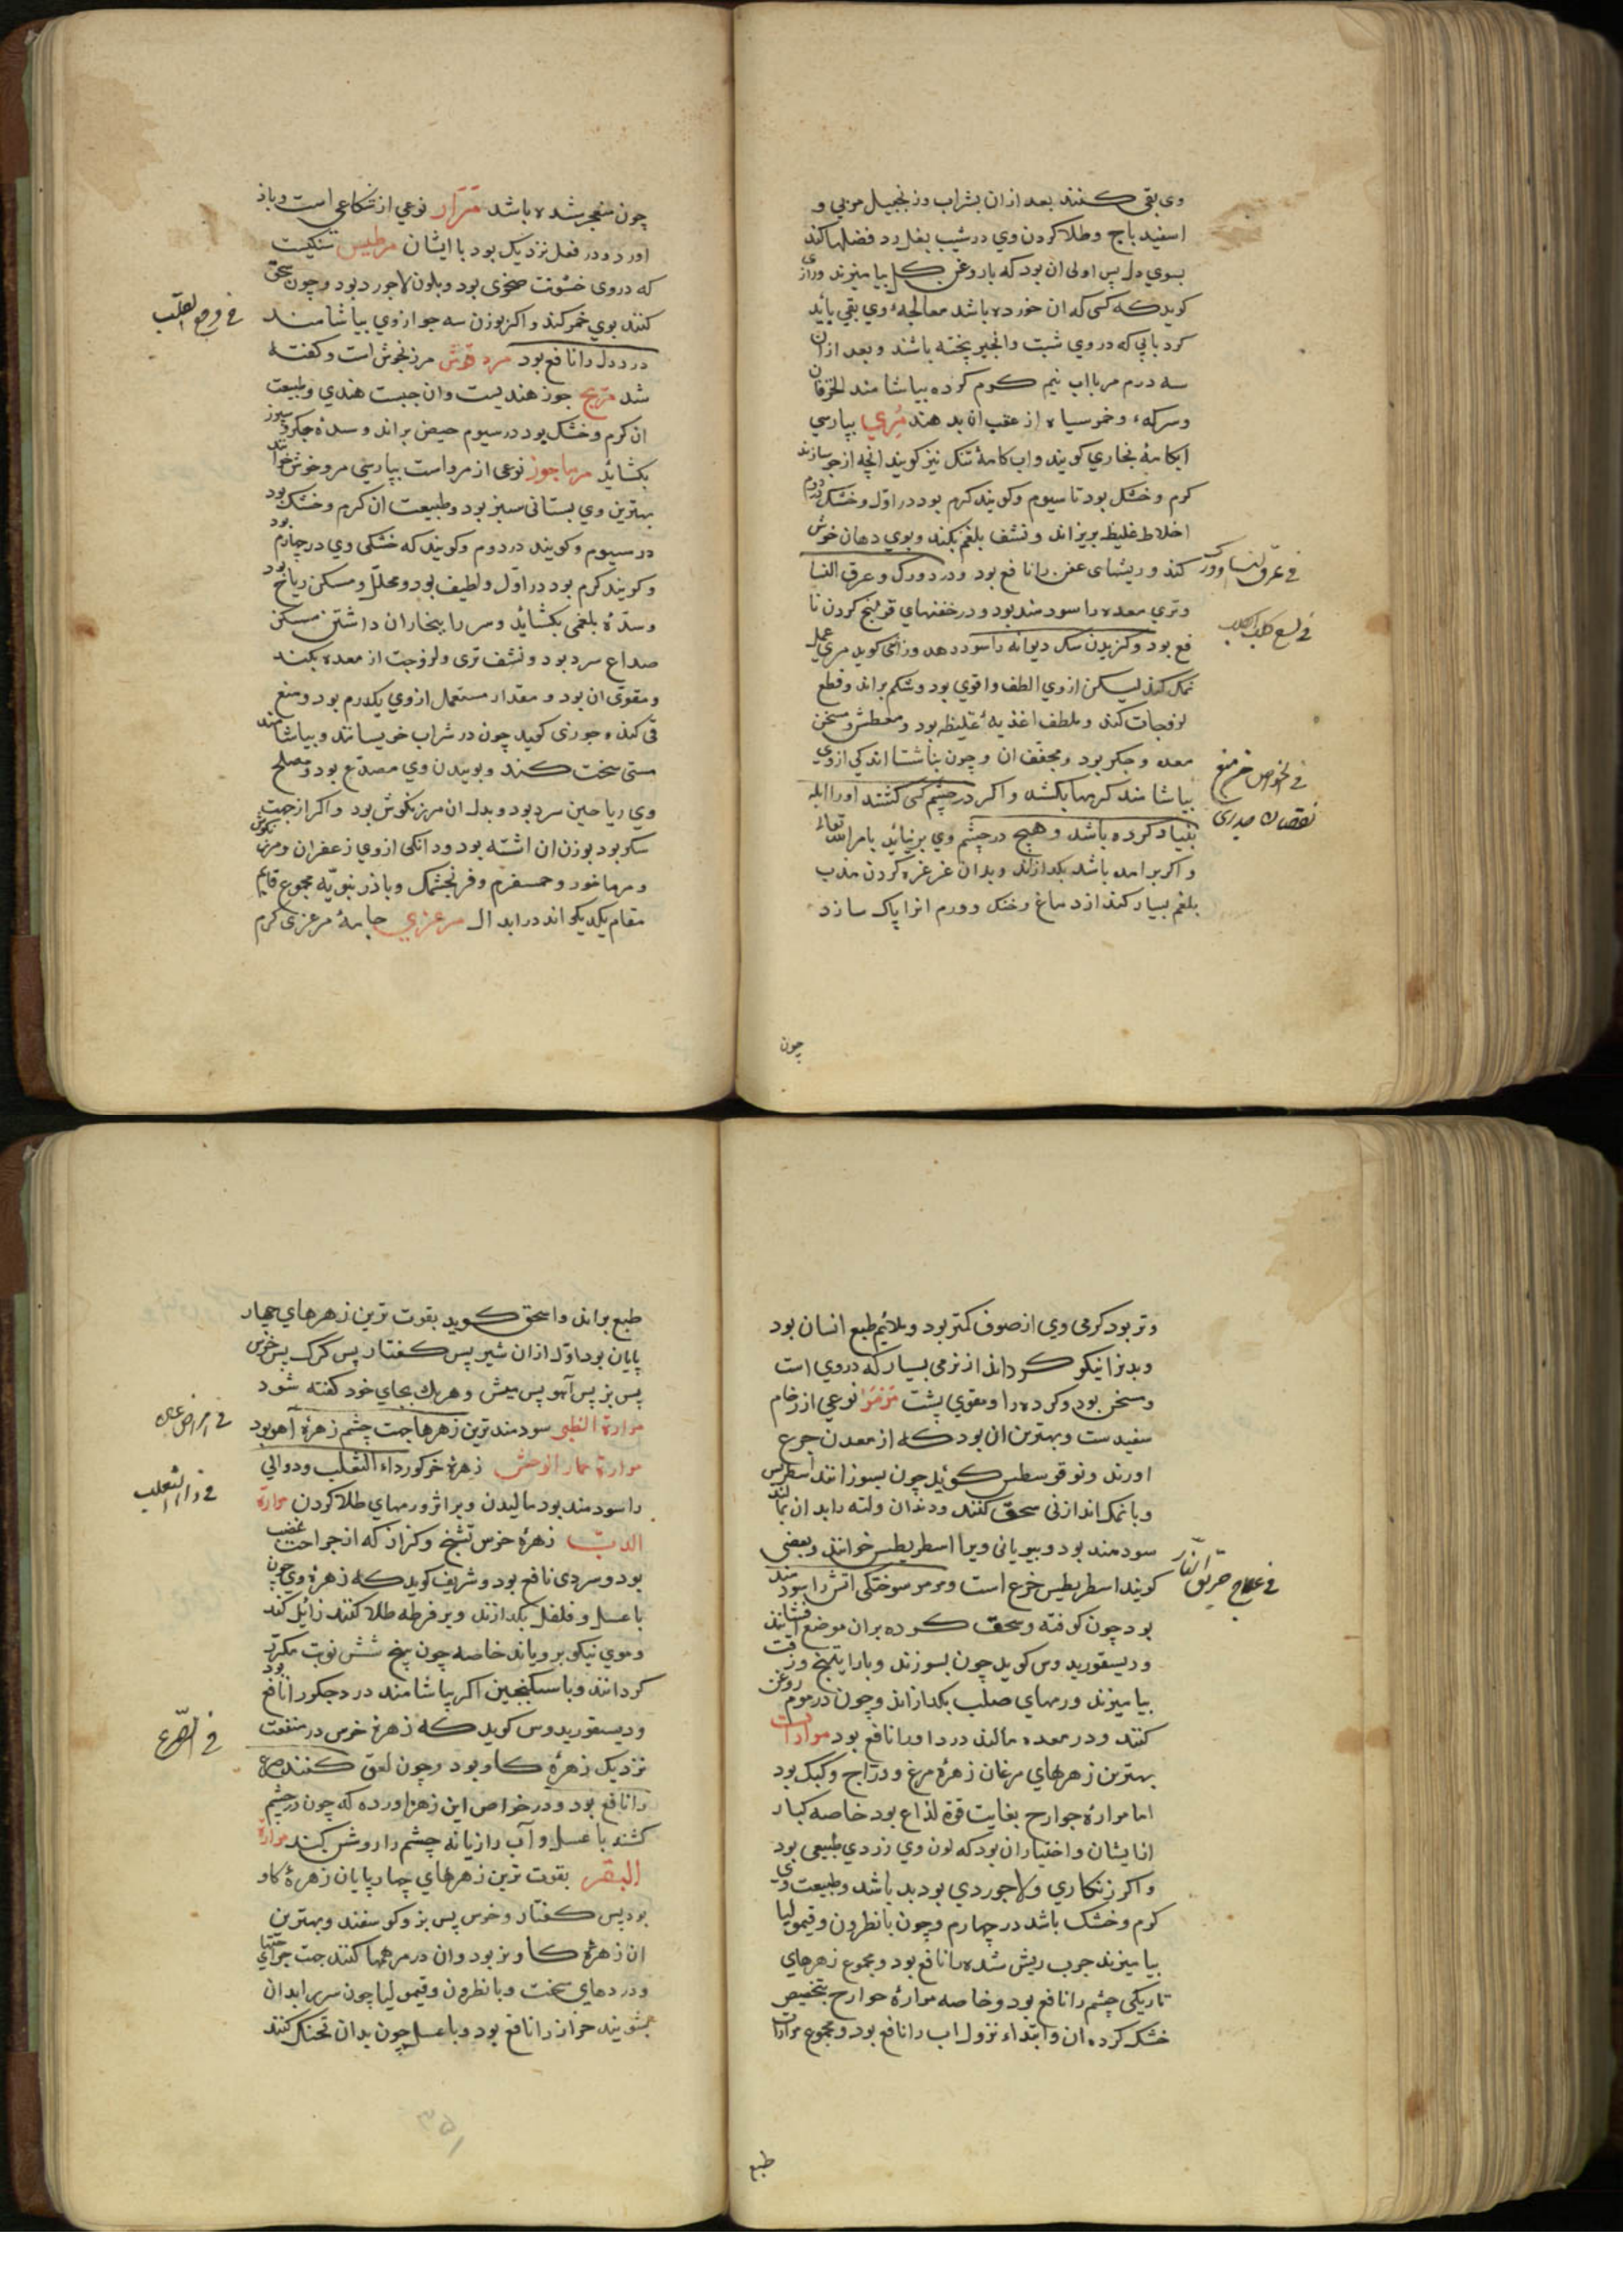 وی بقی کنند بعد ازان بشراب وزنجبیل مربی و
اسفید باج وطلا کردن وی در شیب بغل رد فضلها کند
بسوی دل پس اولی ان بود که باروغن کل بیامیزند ورازی
کوید که کسی که ان خورده باشد معالجهٔ وی بقی باید
کرد بابی که دروی شبت وانجیر پخته باشند وبعد ازان
سه درم مر بااب نیم کرم کرده بیاشامند
وسرکهٔ وخمر سیاه از عقب ان بدهند مُری بپارسی
ابکامهٔ بخاری کویند واب کامهٔ تنک نیز کویند انچه از جو سازند
کرم وخشک بود تا سیوم وکویند کرم بود در اول وخشک دوم
اخلاط غلیظ بریزاند ونشف بلغم بکند وبوی دهان خوش
کند وریشهای عفن رانافع بود ودرد ورک وعرق النسا
وتری معده را سودمند بود ودر حقنهای قولنج کردن نا
فع بود وکزیدن سک دیوانه را سود دهد ورازی کوید مری عمل
نمک کند لیکن ازوی الطف واقوی بود وشکم براند وقطع
لزوجات کند وملطف اغذیهٔ غلیظ بود ومعطش ومسخن
معده وجکر بود ومجفف ان وچون بناشتا اندکی ازوی
بیاشامند کرمها بکشد واکر در چشم کسی کشند اورا ابله
بنیاد کرده باشد وهیچ در چشم وی برنیاید بامر الله تعالی
واکر برامده باشد بکدازاند وبدان غرغره کردن جذب
بلغم بسیار کند از دماغ وحنک وورم انرا پاک سازد
چون
فی عرق النسا وورک
فی لسع کلب الکلب
فی الخواص
نقصان جدری
چون منفجر شده باشد مَرَار نوعی از شکاعی است وباذ
اورد ودر فعل نزدیک بود با ایشان مرطیس سنکیست
که دروی خشونت صخری بود وبلون لاجورد بود وچون سحق
کنند بوی خمر کند واکر بوزن سه جو ازوی بیاشامند
درد دل رانافع بود مردقوش مرزنجوش است وکفته
شد مریح جوز هندیست وان حبیست هندی وطبیعت
ان کرم وخشک بود در سیوم حیض براند وسدهٔ جکر وسپرز
بکشاید مرماحوز نوعی از مرو است بپارسی مروخوش خوانند
بهترین وی بستانی سبز بود وطبیعت ان کرم وخشک بود
در سیوم وکویند در دوم وکویند که خشکی وی در چهارم بود
وکویند کرم بود در اول ولطیف بود ومحلل ومسکن ریاح بود
وسدهٔ بلغمی بکشاید وسر را ببخاران داشتن مسکن
صداع سرد بود ونشف تری ولزوجت از معده بکند
ومقوی ان بود ومقدار مستعمل ازوی یکدرم بود ومنع
قی کند وخوزی کوید چون در شراب خویسانند وبیاشامند
مستی سخت کند وبوییدن وی مصدع بود ومصلح
وی ریاحین سرد بود وبدل ان مرزنکوش بود واکر از جهت
سکر بود بوزن ان اشنه بود ودانکی ازوی زعفران ومرزنکوش
ومرماخور وحمسفرم وفرنجشمک وباذرنبویه مجموع قایم
مقام یکدیکراند در ابدال مرعزی جامهٔ مرعزی کرم
فی وجع القلب
وتر بود کرمی وی از صوف کمتر بود وملائم طبع انسان بود
وبدنرا نیکو کرداند از نرمی بسیار که دروی است
ومسخن بود وکرده را ومقوی پشت مَرمَر نوعی از رخام
سفید ست وبهترین ان بود که از معدن جزع
اورند ونوقوسطس کوید چون بسوزانند
وبانمک اندرانی سحق کنند ودندان ولثه رابدان بمالند
سودمند بود وبیونانی ویرا اسطریطس خوانند وبعضی
کویند اسطریطیس جزع است ومرمر سوختکی اتش را سودمند
بود چون کوفته وسحق کرده بران موضع افشانند
ودیسقوریدوس کوید چون بسوزند وبا راتینج وزفت
بیامیزند ورمهای صلب بکدازاند وچون در موم روغن
کنند ودر معده مالند درد اورا نافع بود مرارات
بهترین زهرهای مرغان زهرهٔ مرغ ودراج وکبک بود
اما مرارهٔ جوارح بغایت قوة لذاع بود خاصه کبار
از ایشان واختیار ان بود که لون وی زردی طبیعی بود
واکر زنکاری ولاجوردی بود بد باشد وطبیعت وی
کرم وخشک باشد در چهارم وچون بانطرون وقیمولیا
بیامیزند جرب ریش شده رانافع بود ومجموع زهرهای
تاریکی چشم رانافع بود وخاصه مرارهٔ جوارح بتخصیص
خشک کرده ان وابتداء نزول اب رانافع بود ومجموع مرارات
طبع
فی علاج حریق النار
طبع براند واسحق کوید بقوت ترین زهرهای چهار
پایان بود اول ازان شیر پس کفتار پس کرک پس خرس
پس بز پس آهو پس میش وهریک بجای خود کفته شود
مرارة الظبی سودمند ترین زهرها جهت چشم زهرهٔ آهو بود
مرارة حمار الوحش زهرهٔ خرکور داء الثعلب ودوالی
را سودمند بود مالیدن وبر اثر ورمهای طلا کردن مرارة
الدب زهرهٔ خرس تشنج وکزاز که از جراحت عصب
بود وسردی نافع بود وشریف کوید که زهرهٔ وی چون
باعسل وفلفل بکدازند وبر قرطه طلا کنند زایل کند
وموی نیکو برویاند خاصه چون پنج شش نوبت مکرر
کردانند وباسکنجبین اکر بیاشامند درد جکر رانافع بود
ودیسقوریدوس کوید که زهرهٔ خرس در منفعت
نزدیک زهرهٔ کاو بود وچون لعق کنند صرع
رانافع بود ودر خواص این زهر اورده که چون در چشم
کشند باعسل وآب رازیانه چشم را روشن کند مرارة
البقر بقوت ترین زهرهای چهارپایان زهرهٔ کاو
بود پس کفتار وخرس پس بز وکوسفند وبهترین
ان زهرهٔ کاو نر بود وان در مرهمها کنند جهت جراحتهای
ودردهای سخت وبانطرون وقیمولیا چون سر رابدان
بشویند حزاز رانافع بود وباعسل چون بدان تحنک کنند
فی امراض عین
فی داء الثعلب
فی الصرع
۳۵۱